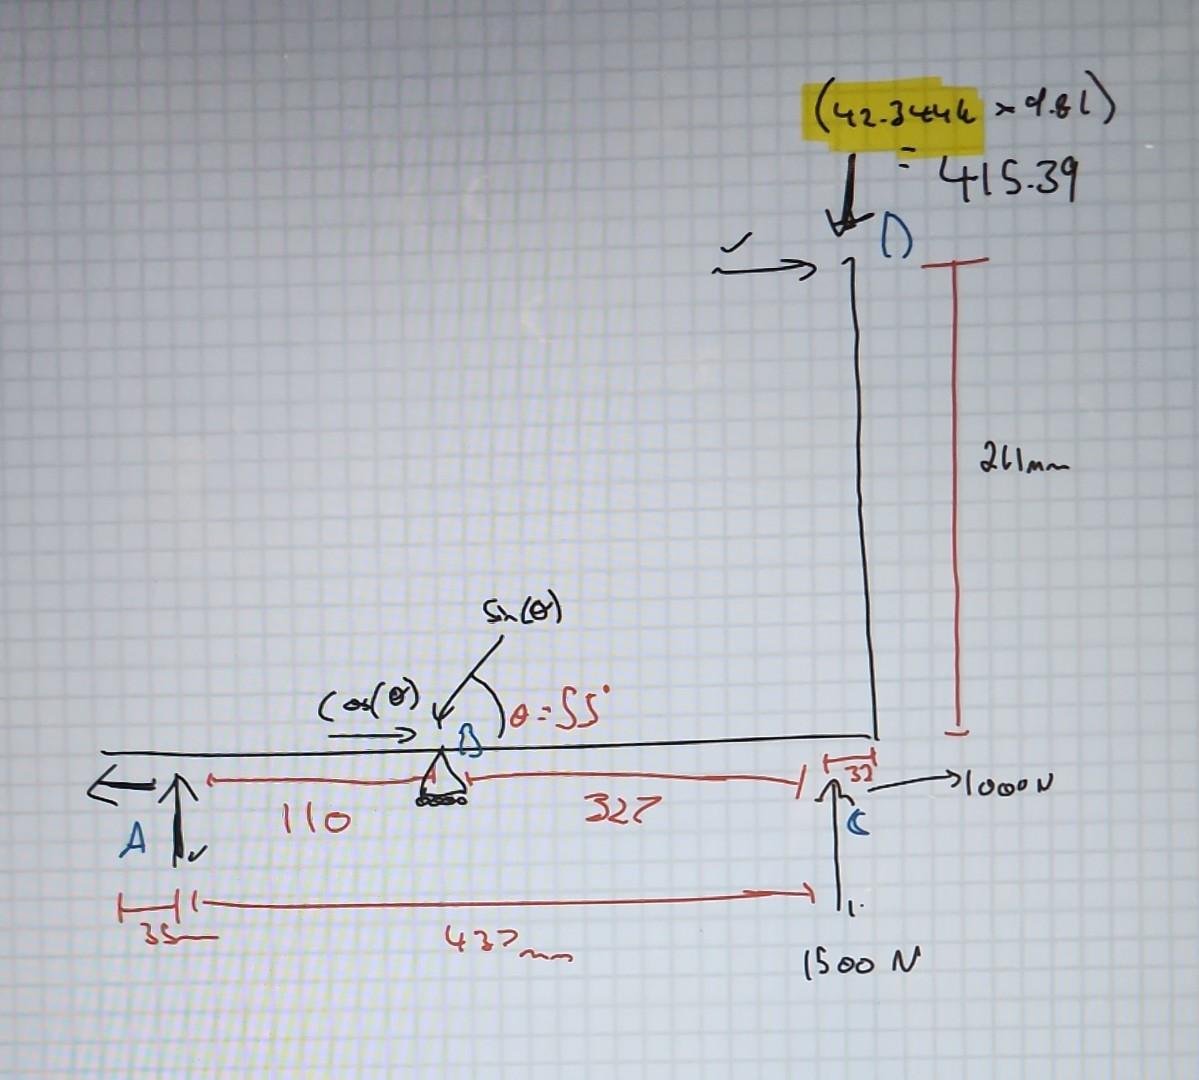 (42.3446 × 9.81)
= 415.39
D
261mm
Sin(θ)
Cos(θ)
θ = 55°
B
32
1000N
110
327
A
C
35
437mm
1500 N